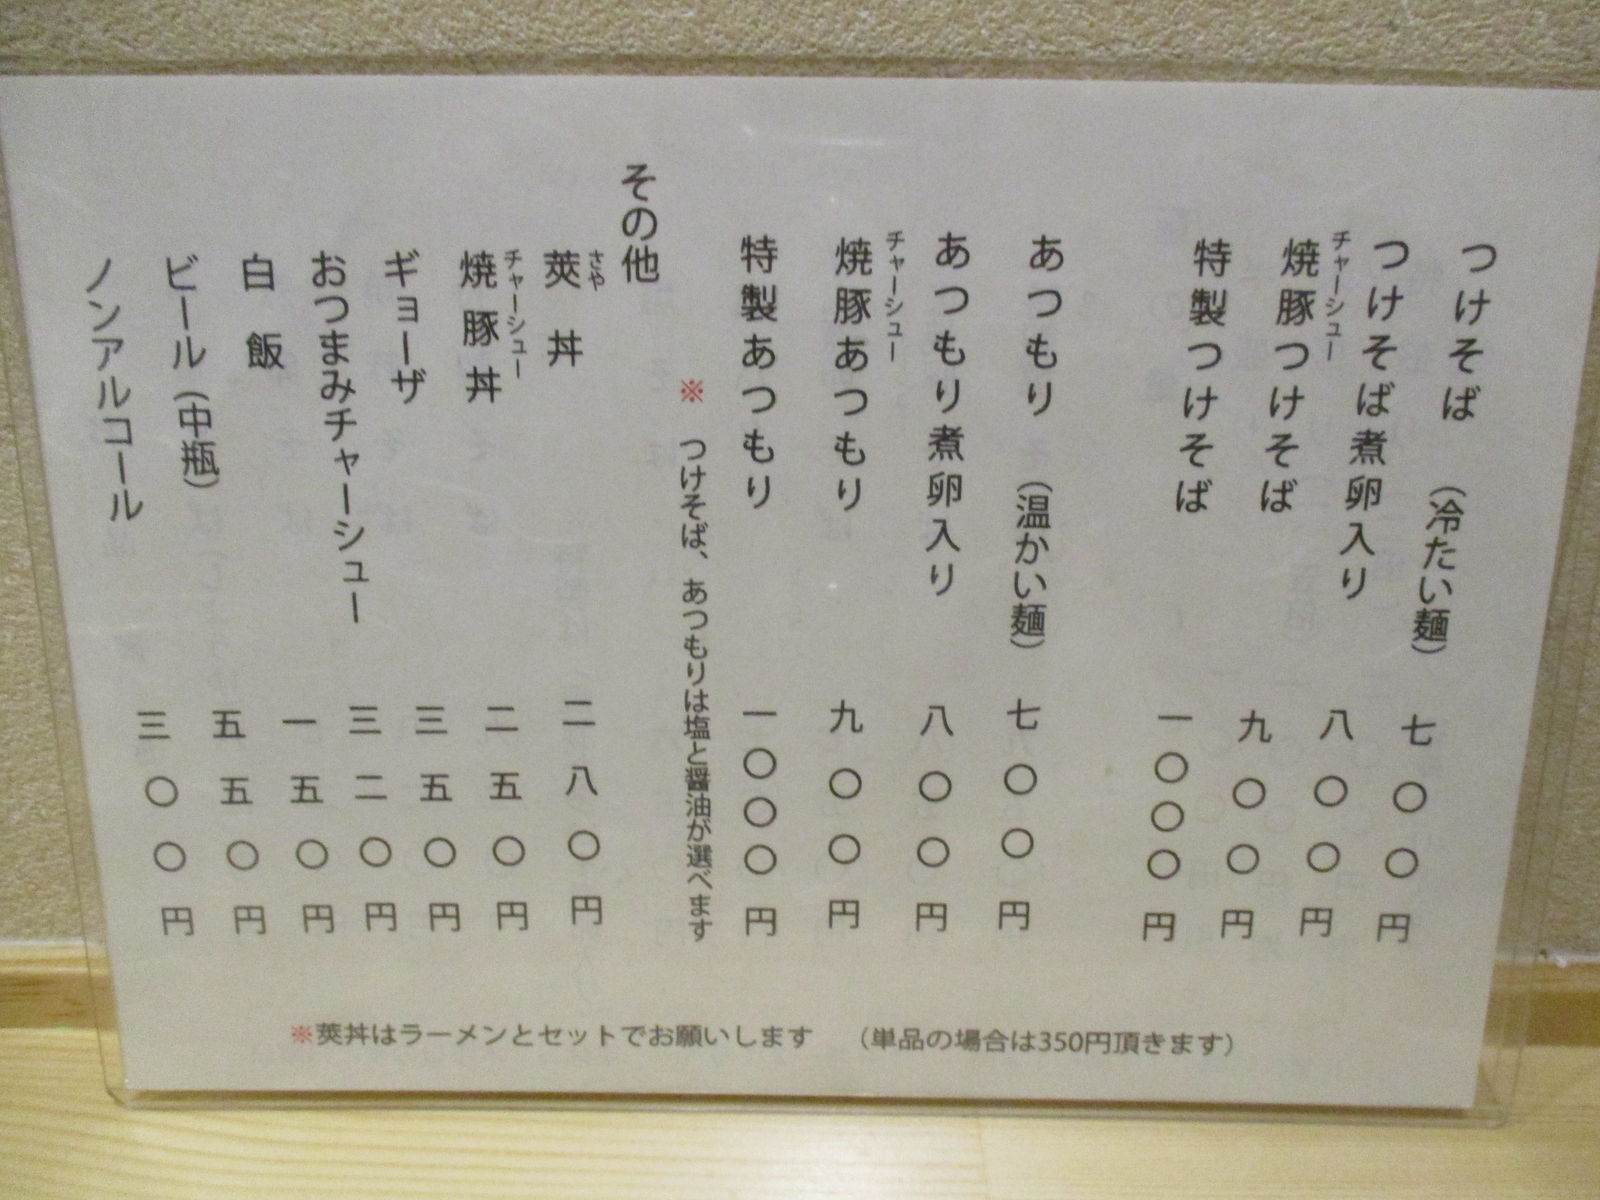 つけそば (冷たい麺) 七〇〇円
つけそば煮卵入り 八〇〇円
チャーシュー
焼豚つけそば 九〇〇円
特製つけそば 一〇〇〇円
あつもり (温かい麺) 七〇〇円
あつもり煮卵入り 八〇〇円
チャーシュー
焼豚あつもり 九〇〇円
特製あつもり 一〇〇〇円
※ つけそば、あつもりは塩と醤油が選べます
その他
さや
莢丼 二八〇円
チャーシュー
焼豚丼 二五〇円
ギョーザ 三五〇円
おつまみチャーシュー 三二〇円
白飯 一五〇円
ビール(中瓶) 五五〇円
ノンアルコール 三〇〇円
※莢丼はラーメンとセットでお願いします (単品の場合は350円頂きます)